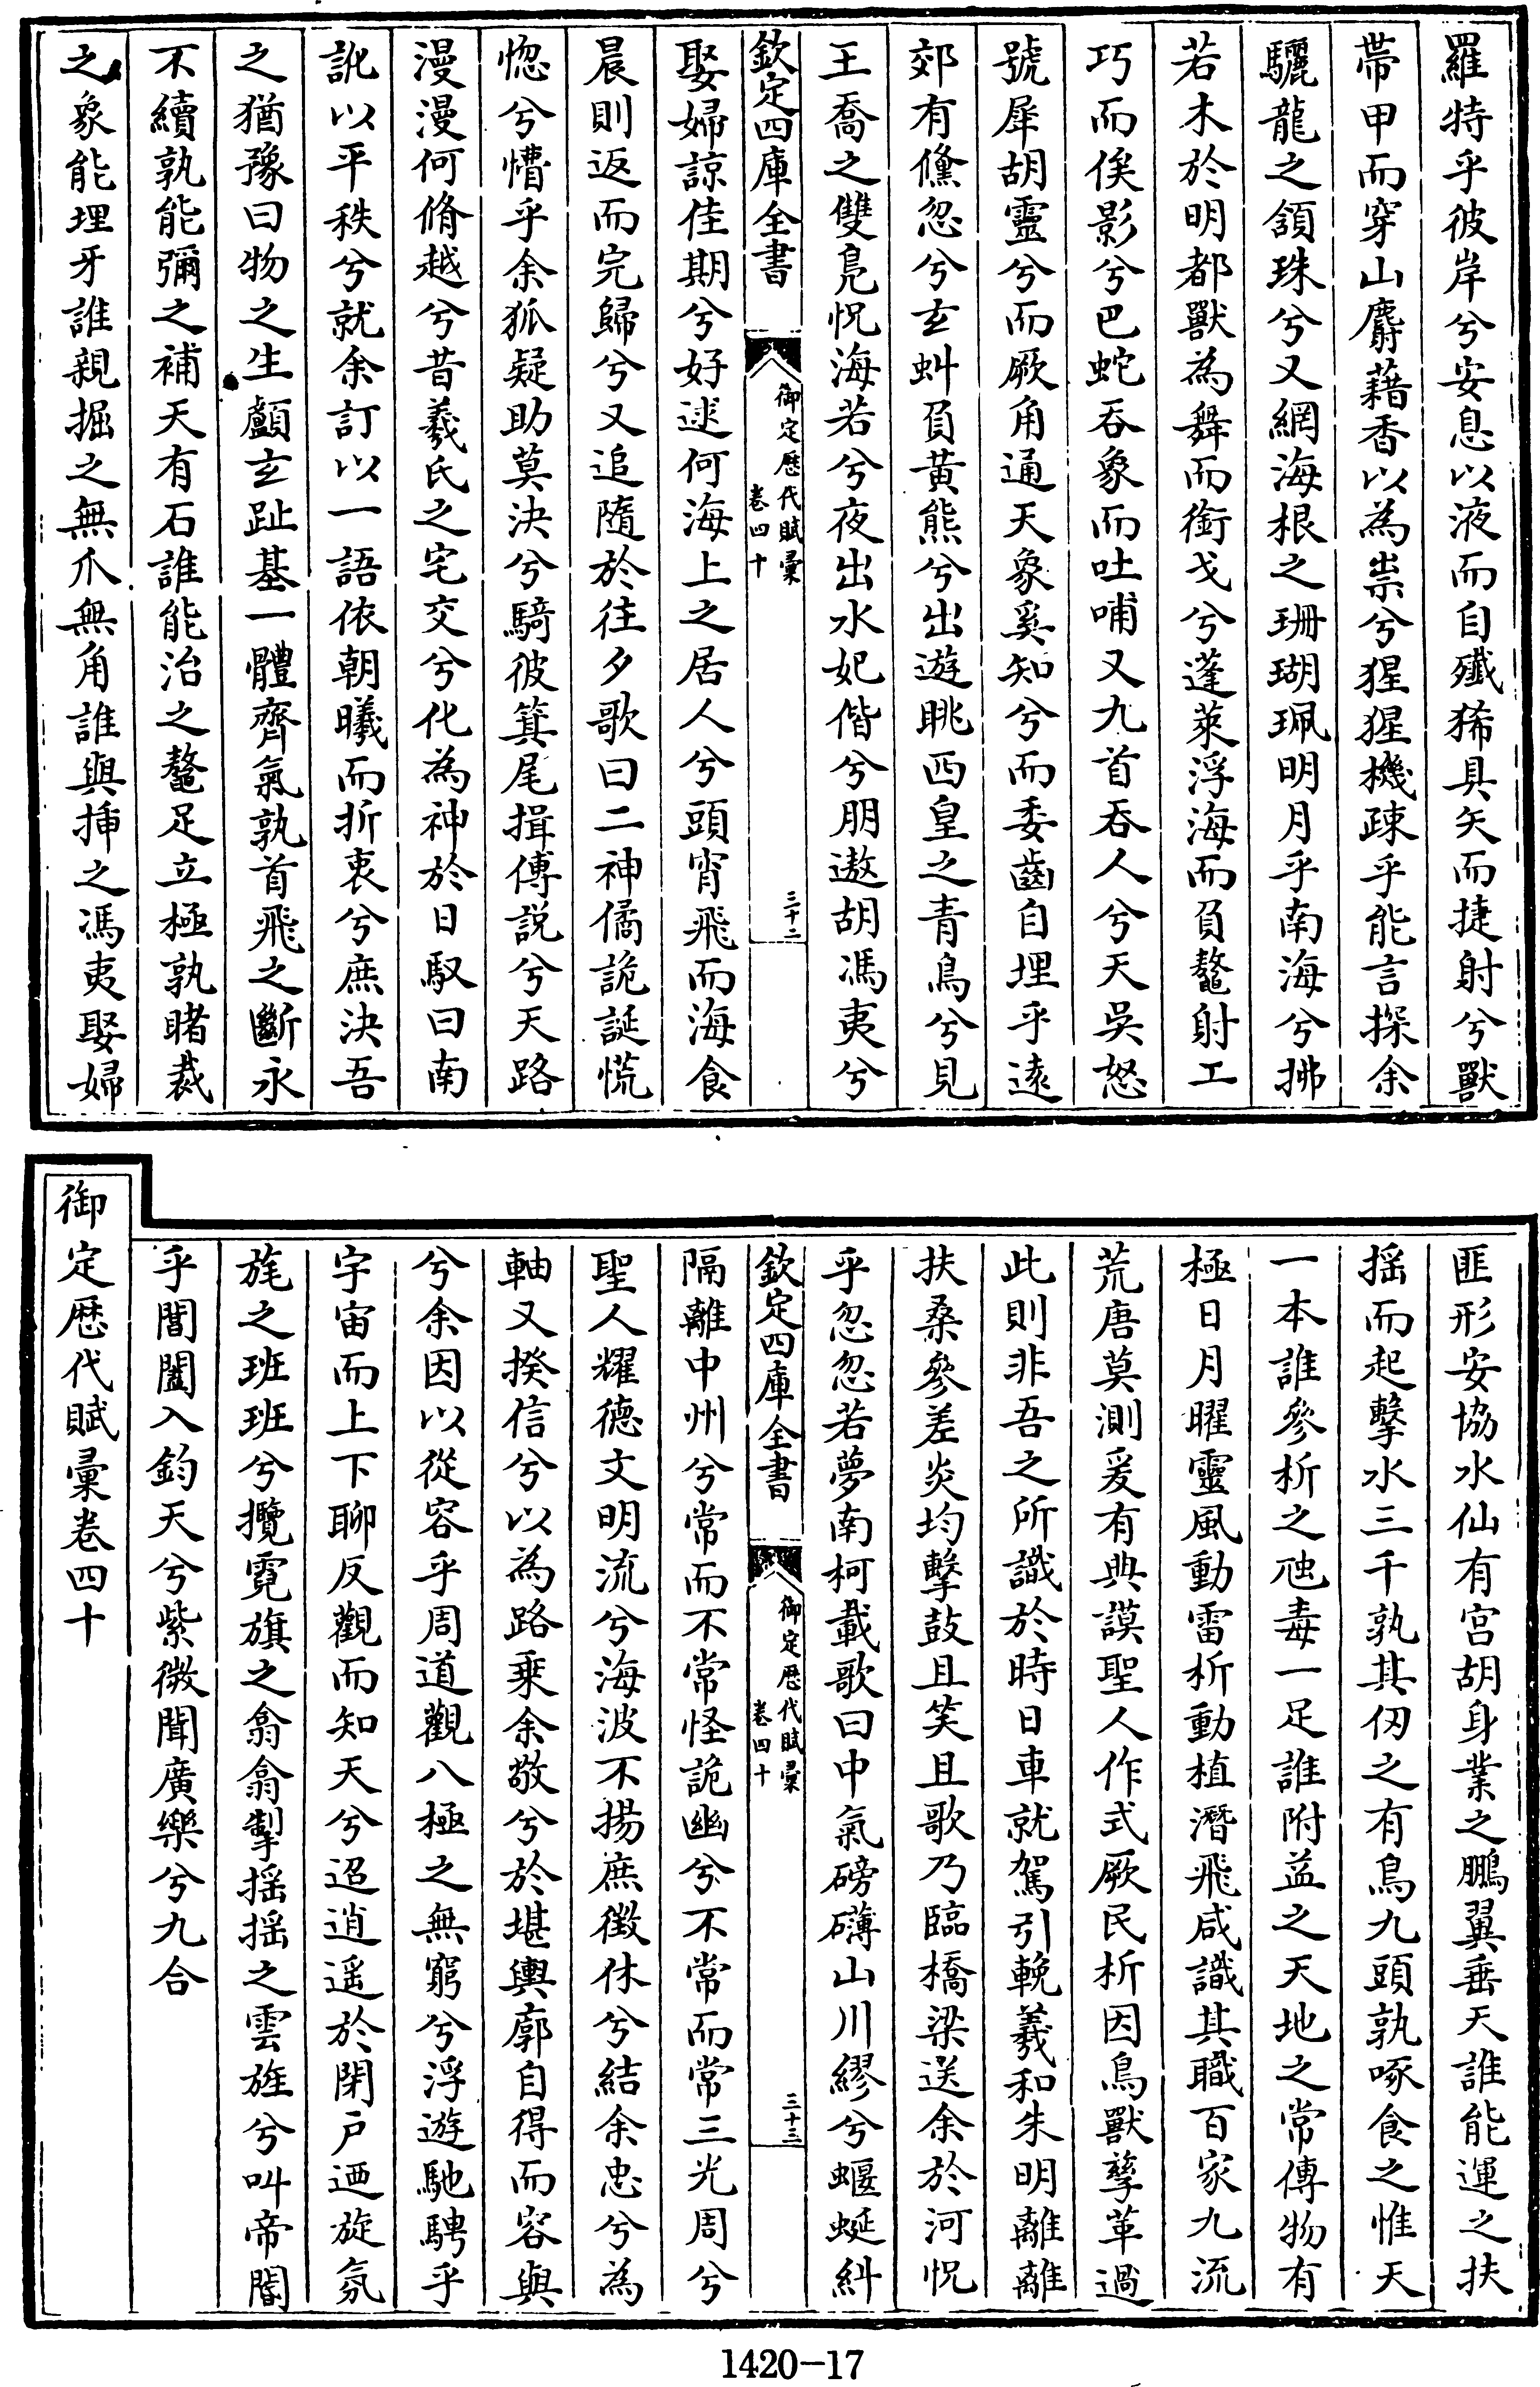 羅特乎彼岸兮安息以液而自殲狶具矢而捷射兮獸
帶甲而穿山麝藉香以為祟兮猩猩機疎乎能言探余
驪龍之頷珠兮又網海根之珊瑚珮明月乎南海兮拂
若木於明都獸為舞而銜戈兮蓬萊浮海而負鼇射工
巧而俟影兮巴蛇吞象而吐哺又九首吞人兮天吳怒
號犀胡靈兮而厥角通天象奚知兮而委齒自埋乎遠
郊有儵忽兮玄虯負黃熊兮出遊眺西皇之青鳥兮見
王喬之雙鳧怳海若兮夜出水妃偕兮朋遨胡馮夷兮
欽定四庫全書
御定歷代賦彙
卷四十
三十二
娶婦諒佳期兮好逑何海上之居人兮頭宵飛而海食
晨則返而完歸兮又追隨於往夕歌曰二神僑詭誕慌
惚兮懵乎余狐疑助莫決兮騎彼箕尾揖傅説兮天路
漫漫何脩越兮昔羲氏之宅交兮化為神於日馭曰南
訛以平秩兮就余訂以一語依朝曦而折衷兮庶決吾
之猶豫曰物之生顱玄趾基一體齊氣孰首飛之斷永
不續孰能彌之補天有石誰能治之鼇足立極孰睹裁
之象能埋牙誰親掘之無爪無角誰與揷之馮夷娶婦
匪形安協水仙有宮胡身業之鵬翼垂天誰能運之扶
搖而起擊水三千孰其仞之有鳥九頭孰啄食之惟天
一本誰參析之虺毒一足誰附益之天地之常傳物有
極日月曜靈風動雷析動植潛飛咸識其職百家九流
荒唐莫測爰有典謨聖人作式厥民析因鳥獸孳革過
此則非吾之所識於時日車就駕引輓羲和朱明離離
扶桑參差炎均擊鼓且笑且歌乃臨橋梁送余於河怳
乎忽忽若夢南柯載歌曰中氣磅礴山川繆兮蝘蜒糾
欽定四庫全書
御定歷代賦彙
卷四十
三十三
隔離中州兮常而不常怪詭幽兮不常而常三光周兮
聖人耀德文明流兮海波不揚庶徵休兮結余忠兮為
軸又揆信兮以為路乘余敬兮於堪輿廓自得而容與
兮余因以從容乎周道觀八極之無窮兮浮遊馳騁乎
宇宙而上下聊反觀而知天兮迢逍遥於閉户迺旋氛
旄之班班兮攬霓旗之翕翕掣揺揺之雲旌兮叫帝閽
乎閶闔入鈞天兮紫微聞廣樂兮九合
御定歷代賦彙卷四十
1420-17